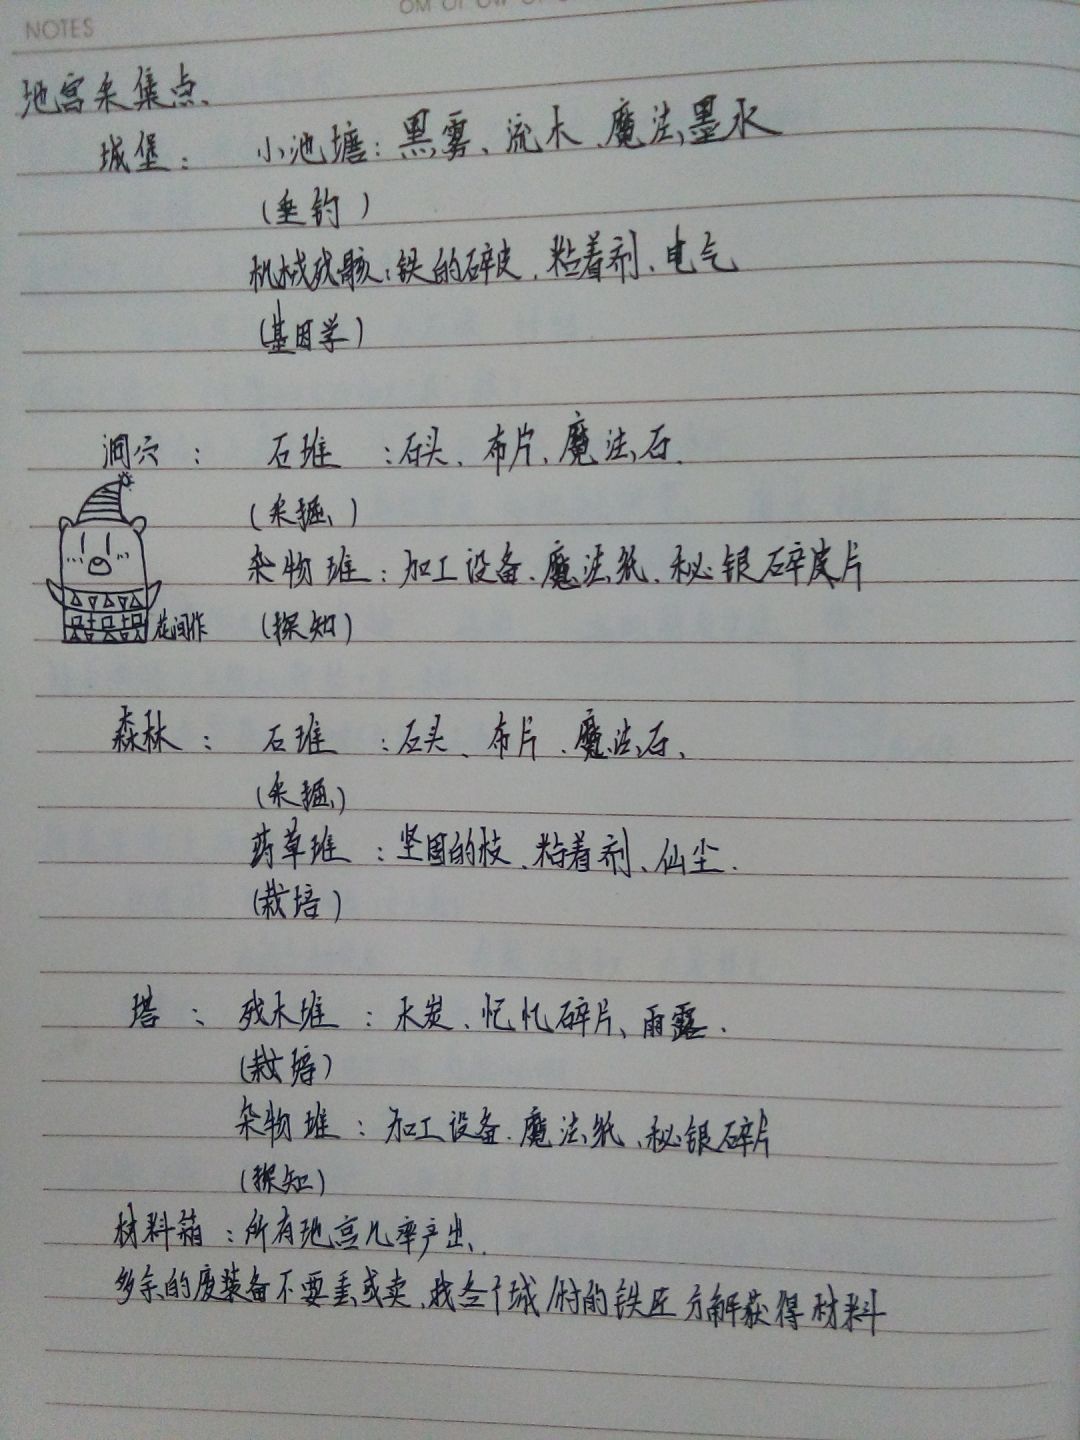 NOTES
地宫采集点、
城堡： 小池塘：黑雾、流木、魔法墨水
（垂钓）
机械残骸：铁的碎皮、粘着剂、电气
（基因学）
洞穴： 石堆：石头、布片、魔法石、
（采掘）
杂物堆：加工设备、魔法纸、秘银碎皮片
花间作 （探知）
森林： 石堆：石头、布片、魔法石、
（采掘）
药草堆：坚固的枝、粘着剂、仙尘.
（栽培）
塔： 残木堆：木炭、忆忆碎片、雨露.
（栽培）
杂物堆：加工设备、魔法纸、秘银碎片
（探知）
材料箱：所有地宫几率产出、
多余的废装备不要丢或卖，找各个城 的铁匠分解获得材料